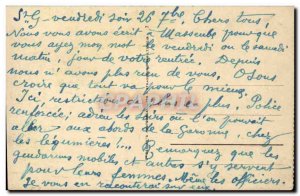 St G. vendredi soir 26 7bre. Chers tous.
Nous vous avons écrit à Masseube pour que
vous ayez moy mot le vendredi ou le samedi
matin, jour de votre rentrée. Depuis
nous n'avons plus rien de vous. Osons
croire que tout va pour le mieux.
Ici, restrictions de plus en plus. Police
renforcée, adieu les soirs où l'on pouvait
aller aux abords de la Garonne, chez
les légumières!.. Remarquez que les
gendarmes mobiles et autres s'y servent
pour leurs femmes. Même les officiers.
Je vous en raconterai sur eux